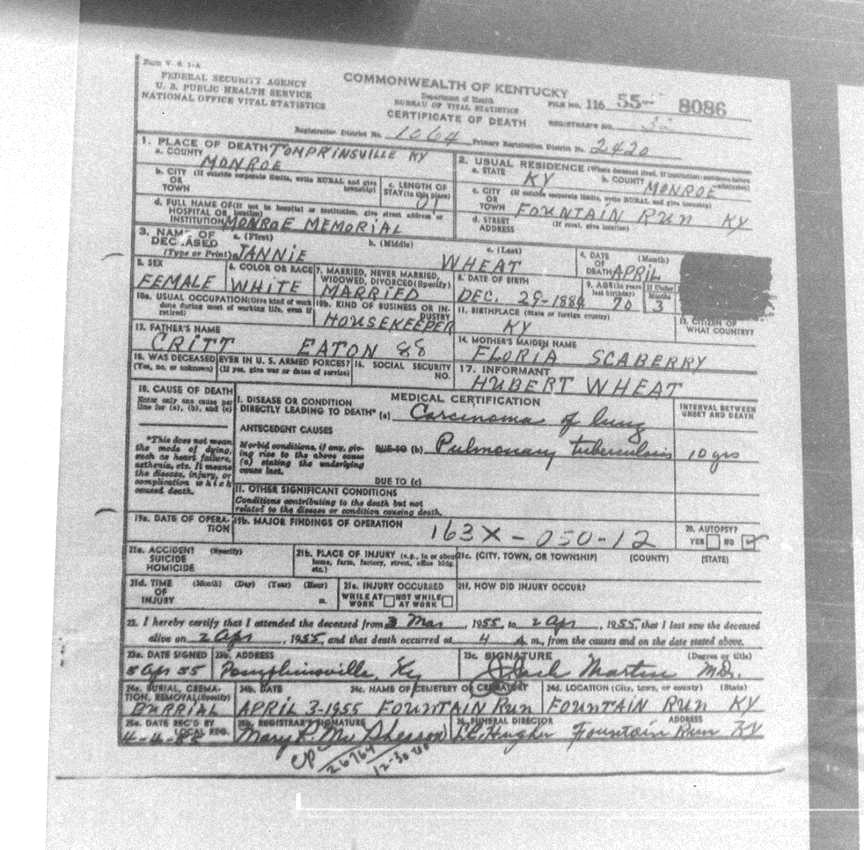 Form V. S. 1-A
FEDERAL SECURITY AGENCY
U. S. PUBLIC HEALTH SERVICE
NATIONAL OFFICE VITAL STATISTICS
COMMONWEALTH OF KENTUCKY
Department of Health
BUREAU OF VITAL STATISTICS
CERTIFICATE OF DEATH
FILE NO. 116 55- 8086
REGISTRAR'S NO. 32
Registration District No. 1064 Primary Registration District No. 2420
1. PLACE OF DEATH TOMPRINSVILLE KY
a. COUNTY MONROE
2. USUAL RESIDENCE (Where deceased lived. If institution: residence before admission)
a. STATE KY b. COUNTY MONROE
b. CITY (If outside corporate limits, write RURAL and give township) OR TOWN
c. LENGTH OF STAY (in this place)
c. CITY (If outside corporate limits, write RURAL and give township) OR TOWN FOUNTAIN RUN KY
d. FULL NAME OF (If not in hospital or institution, give street address or location) HOSPITAL OR INSTITUTION MONROE MEMORIAL
d. STREET ADDRESS (If rural, give location)
3. NAME OF DECEASED (Type or Print) a. (First) b. (Middle) c. (Last)
JANNIE WHEAT
4. DATE OF DEATH (Month) APRIL
5. SEX FEMALE
6. COLOR OR RACE WHITE
7. MARRIED, NEVER MARRIED, WIDOWED, DIVORCED (Specify) MARRIED
8. DATE OF BIRTH DEC. 29-1884
9. AGE (In years last birthday) 70 If Under Months 3
10a. USUAL OCCUPATION (Give kind of work done during most of working life, even if retired)
10b. KIND OF BUSINESS OR INDUSTRY HOUSEKEEPER
11. BIRTHPLACE (State or foreign country) KY
12. CITIZEN OF WHAT COUNTRY?
13. FATHER'S NAME CRITT EATON 88
14. MOTHER'S MAIDEN NAME FLORIA SCABERRY
15. WAS DECEASED EVER IN U. S. ARMED FORCES? (Yes, no, or unknown) (If yes, give war or dates of service)
16. SOCIAL SECURITY NO.
17. INFORMANT HUBERT WHEAT
18. CAUSE OF DEATH
Enter only one cause per line for (a), (b), and (c)
MEDICAL CERTIFICATION
INTERVAL BETWEEN ONSET AND DEATH
I. DISEASE OR CONDITION DIRECTLY LEADING TO DEATH* (a) Carcinoma of lung
*This does not mean the mode of dying, such as heart failure, asthenia, etc. It means the disease, injury, or complication which caused death.
ANTECEDENT CAUSES
Morbid conditions, if any, giving rise to the above cause (a) stating the underlying cause last.
DUE TO (b) Pulmonary tuberculosis 10 yrs
DUE TO (c)
II. OTHER SIGNIFICANT CONDITIONS
Conditions contributing to the death but not related to the disease or condition causing death.
19a. DATE OF OPERATION
19b. MAJOR FINDINGS OF OPERATION 163X-050-12
20. AUTOPSY? YES NO
21a. ACCIDENT SUICIDE HOMICIDE (Specify)
21b. PLACE OF INJURY (e.g., in or about home, farm, factory, street, office bldg. etc.)
21c. (CITY, TOWN, OR TOWNSHIP) (COUNTY) (STATE)
21d. TIME OF INJURY (Month) (Day) (Year) (Hour) m.
21e. INJURY OCCURRED WHILE AT WORK NOT WHILE AT WORK
21f. HOW DID INJURY OCCUR?
22. I hereby certify that I attended the deceased from 3 Mar, 1955, to 2 Apr, 1955, that I last saw the deceased
alive on 2 Apr, 1955, and that death occurred at 4 A m., from the causes and on the date stated above.
23a. DATE SIGNED 5 Apr 55
23b. ADDRESS Tompkinsville, Ky
23c. SIGNATURE Martin M.D. (Degree or title)
24a. BURIAL, CREMATION, REMOVAL (Specify) BURRIAL
24b. DATE APRIL 3-1955
24c. NAME OF CEMETERY OR CREMATORY FOUNTAIN RUN
24d. LOCATION (City, town, or county) (State) FOUNTAIN RUN KY
25a. DATE REC'D BY LOCAL REG.
25b. REGISTRAR'S SIGNATURE Mary P. McPherson
26. FUNERAL DIRECTOR ADDRESS Hughes Fountain Run KY
CP 26764